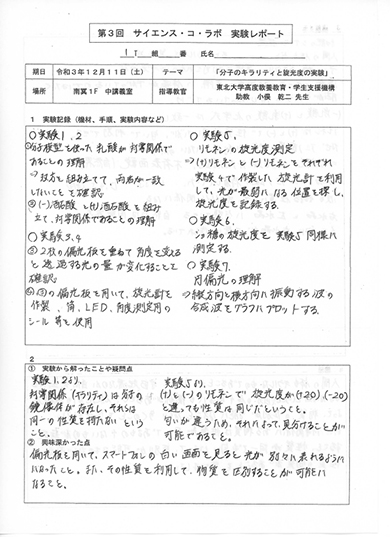 第3回 サイエンス・コ・ラボ 実験レポート
1T 組 番 氏名
期日 令和3年12月11日(土) テーマ 「分子のキラリティと旋光度の実験」
場所 南冥1F 中講義室 指導教官 東北大学高度教養教育・学生支援機構
助教 小俣 乾二 先生
1 実験記録(機材、手順、実験内容など)
○実験1、2
分子模型を使った乳酸が対掌関係で
あることの理解
→双方を組み立てて、両者が一致
しないことを確認
②(-)酒石酸と(+)酒石酸を組み
立て、対掌関係であることの理解
○実験3、4
③2枚の偏光板を重ねて角度を変える
と透過する光の量が変化することを
確認
④③の偏光板を用いて、旋光計を
作製、筒、LED、角度測定用の
シール等を使用
○実験5、
リモネンの旋光度測定
→(+)リモネンと(-)リモネンをそれぞれ
実験4で作製した旋光計を利用
して、光が最弱になる位置を探し、
旋光度を記録する。
○実験6、
ショ糖の旋光度を実験5同様に
測定する。
○実験7、
円偏光の理解
→縦方向と横方向に振動する波の
合成波をグラフにプロットする。
2
① 実験から解ったことや疑問点
実験1、2より、
対掌関係(キラリティ)は分子の
鏡像体が存在し、それらは
同一の性質を持たないという
こと。
実験5より、
(+)と(-)のリモネンで旋光度が(+20)(-20)
と違っても性質は同じだということ。
匂いが違うため、それによって、見分けることが
可能であること。
② 興味深かった点
偏光板を用いて、スマートフォンの白い画面を見ると光が別々に表れるように
なったこと。また、その性質を利用して、物質を区別することが可能に
なること。